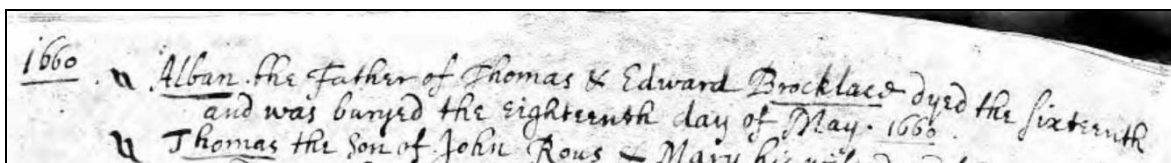 1660 Alban the Father of Thomas & Edward Brocklace dyed the sixteenth
and was buryed the eighteenth day of May. 1660.
Thomas the Son of John Rous & Mary his wife